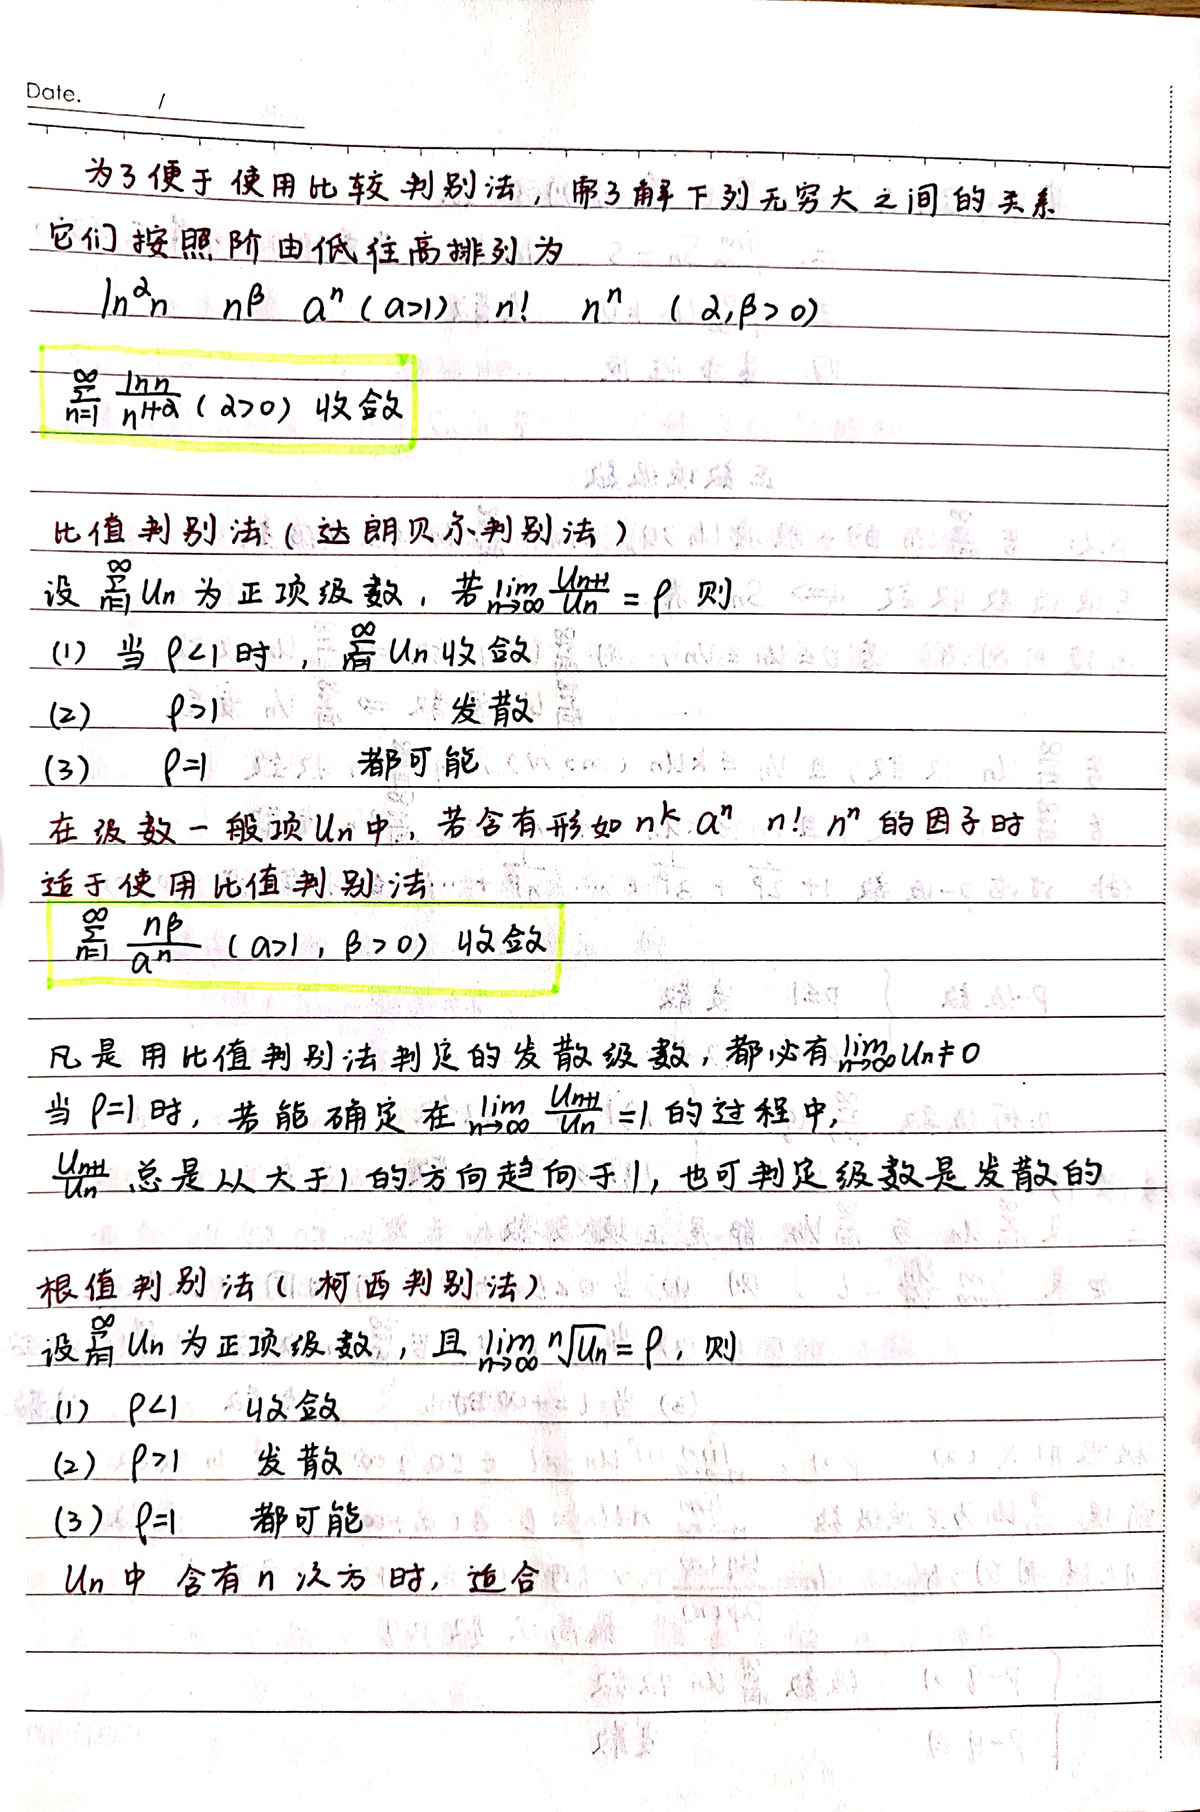 Date. /
为了便于使用比较判别法，需了解下列无穷大之间的关系
它们按照阶由低往高排列为
lnᵅn nᵝ aⁿ (a>1) n! nⁿ (α,β>0)
∑_{n=1}^{∞} lnn/n^{1+α} (α>0) 收敛
比值判别法（达朗贝尔判别法）
设 ∑_{n=1}^{∞} Un 为正项级数，若 lim_{n→∞} U_{n+1}/U_n = ρ 则
(1) 当 ρ<1时，∑_{n=1}^{∞} Un 收敛
(2) ρ>1 发散
(3) ρ=1 都可能
在级数一般项Un中，若含有形如 nᵏ aⁿ n! nⁿ 的因子时
适于使用比值判别法
∑_{n=1}^{∞} nᵝ/aⁿ (a>1, β>0) 收敛
凡是用比值判别法判定的发散级数，都必有 lim_{n→∞} Un≠0
当 ρ=1时，若能确定在 lim_{n→∞} U_{n+1}/U_n =1 的过程中，
U_{n+1}/U_n 总是从大于1的方向趋向于1，也可判定级数是发散的
根值判别法（柯西判别法）
设 ∑_{n=1}^{∞} Un 为正项级数，且 lim_{n→∞} ⁿ√Un = ρ，则
(1) ρ<1 收敛
(2) ρ>1 发散
(3) ρ=1 都可能
Un中 含有n次方时，适合